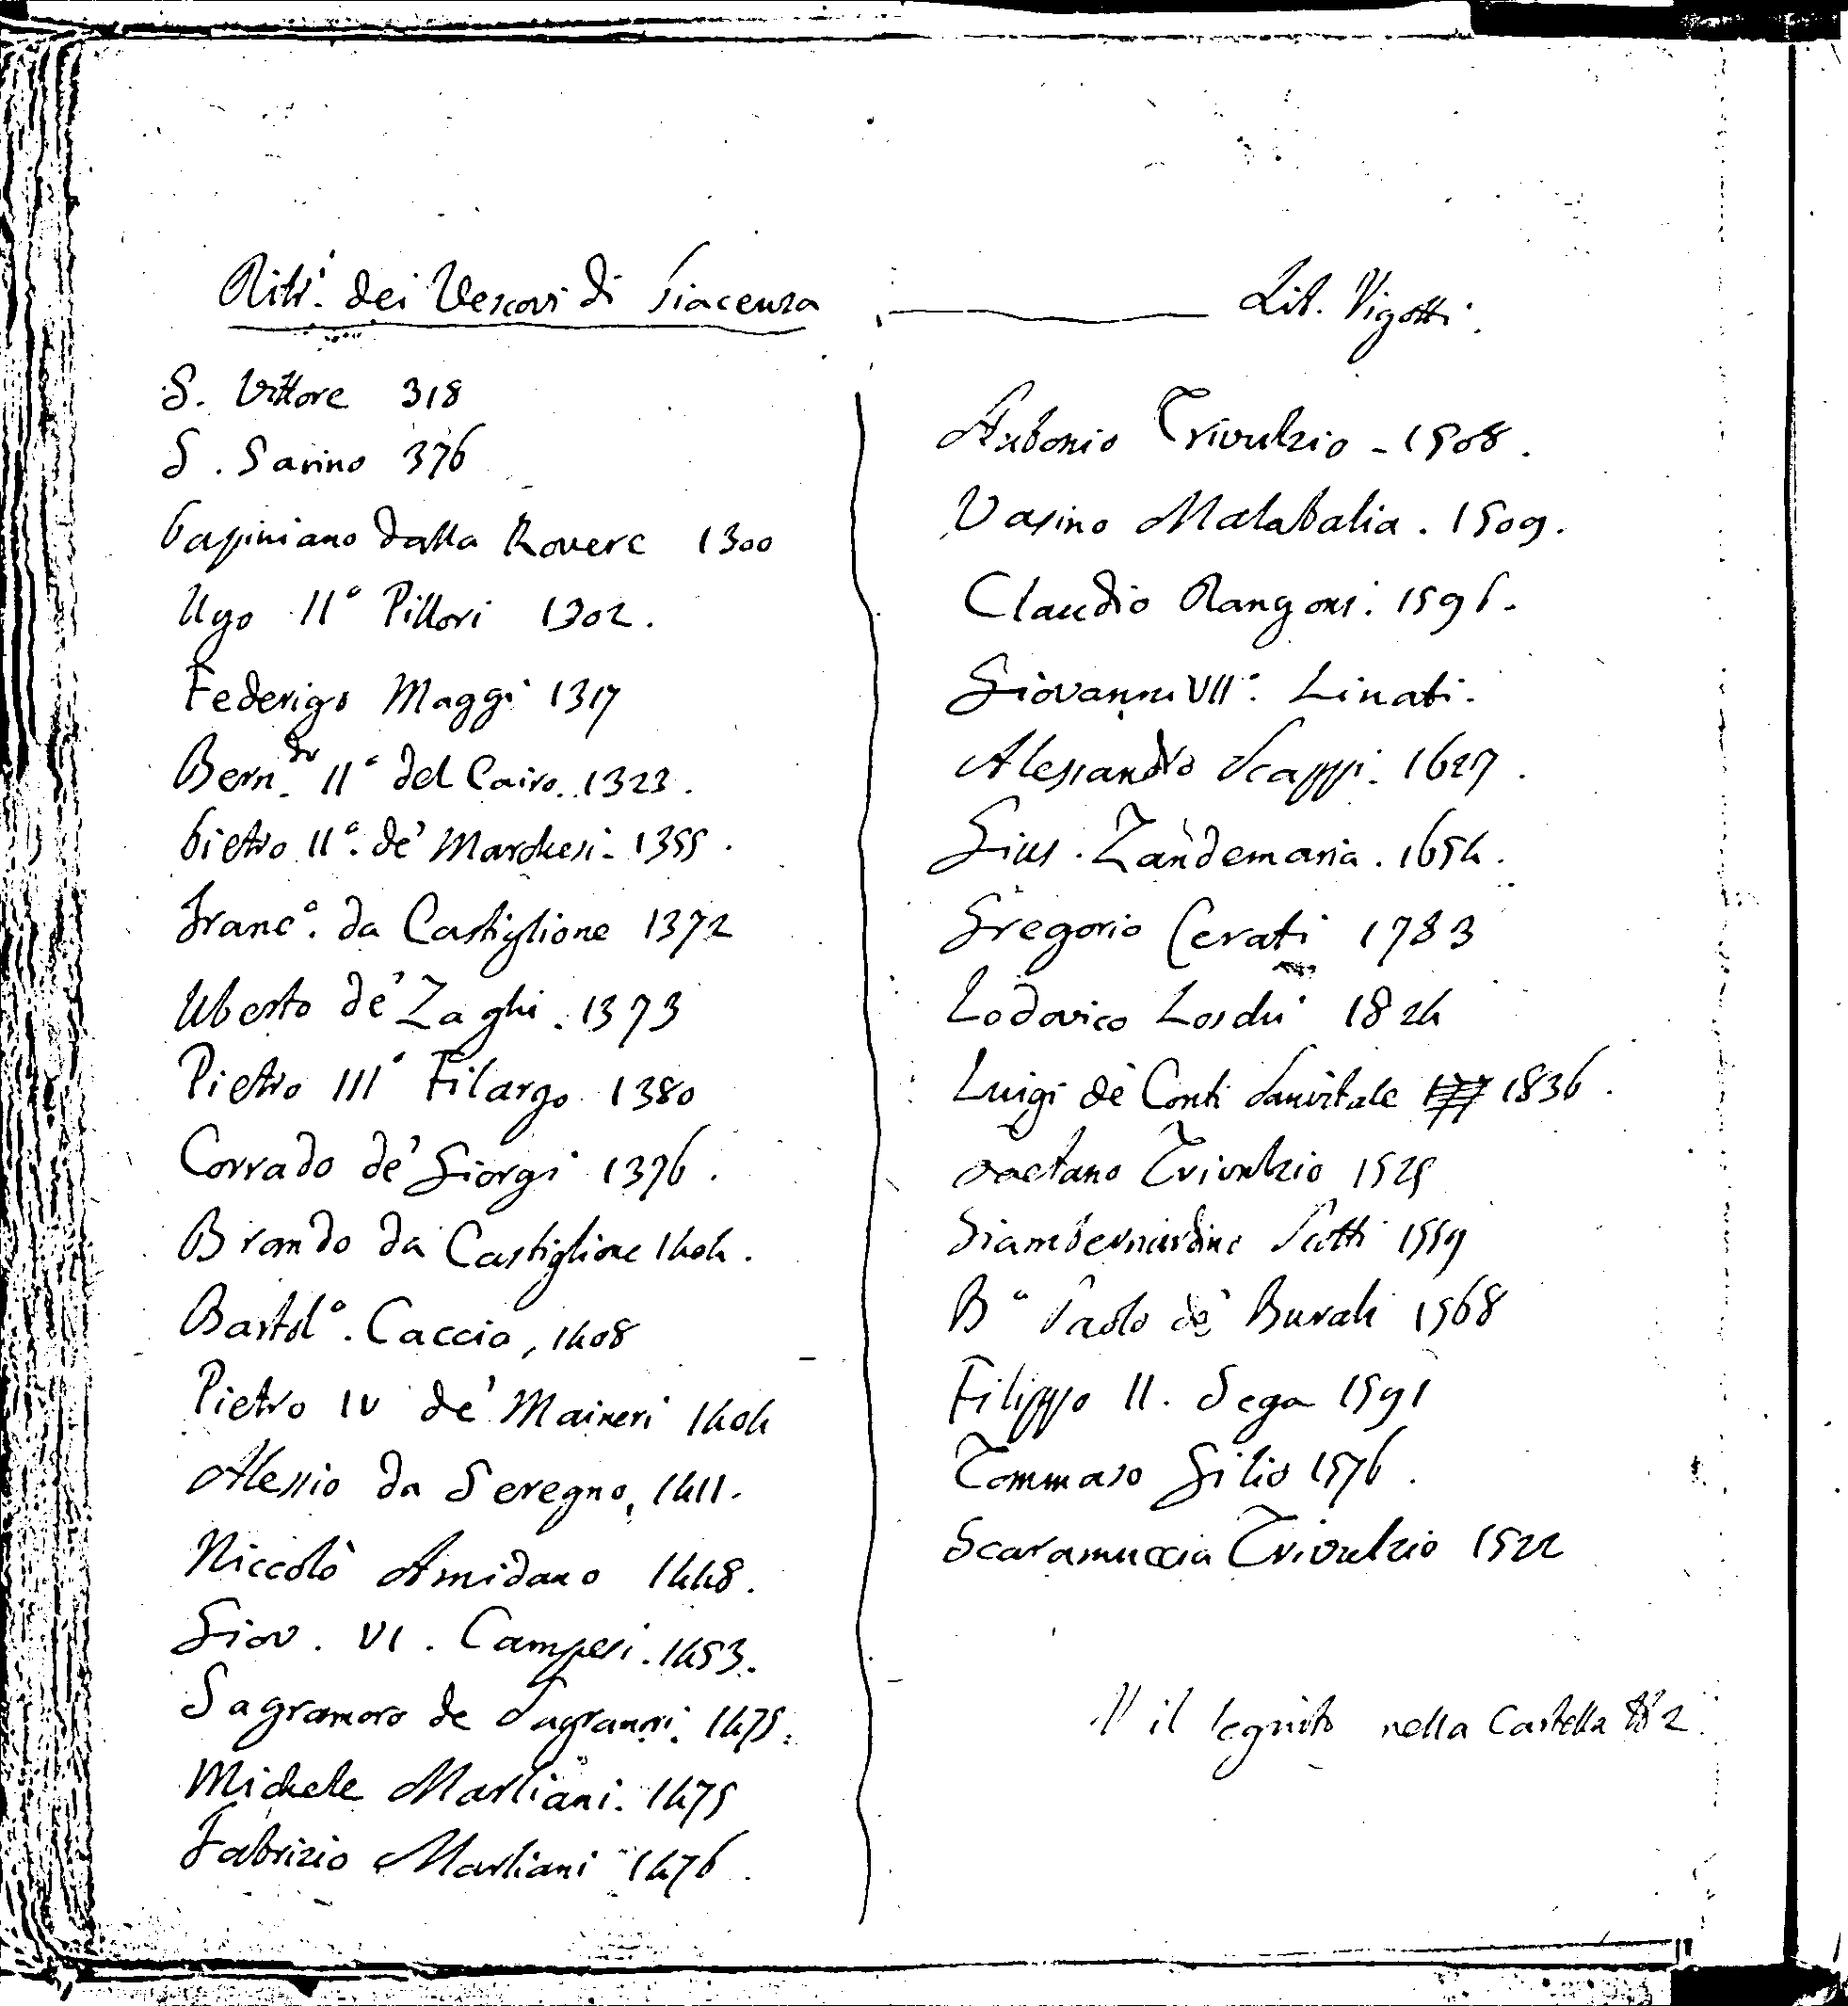 Ritr.i dei Vescovi di Piacenza — Lit. Vigotti.
S. Vittore 318
S. Savino 376
Papiniano dalla Rovere 1300
Ugo II° Pillori 1302.
Federigo Maggi 1317
Bern.do II° del Cairo. 1323.
Pietro II°. de' Marchesi. 1355.
Franc°. da Castiglione 1372
Uberto de' Zaghi. 1373
Pietro III° Filargo 1380
Corrado de' Giorgi 1376.
Brando da Castiglione 1404.
Bartol°. Caccia, 1408
Pietro IV de' Maineri 1404
Alessio da Seregno, 1411.
Niccolò Amidano 1448.
Giov. VI. Campesi. 1453.
Sagramoro de Sagramori. 1475.
Michele Marliani. 1475
Fabrizio Marliani 1476.
Antonio Trivulzio - 1508.
Vasino Malabalia. 1509.
Claudio Rangoni. 1596.
Giovanni VII°. Linati.
Alessandro Scappi. 1627.
Gius. Zandemaria. 1654.
Gregorio Cerati 1783
Lodovico Loschi 1824
Luigi de' Conti Sanvitale 1836.
Gaetano Trivulzio 1525
Giambernardino Scotti 1559
B° Paolo de' Burali 1568
Filippo II. Sega 1591
Tommaso Gilio 1576.
Scaramuccia Trivulzio 1522
V il seguito nella Cartella 2.